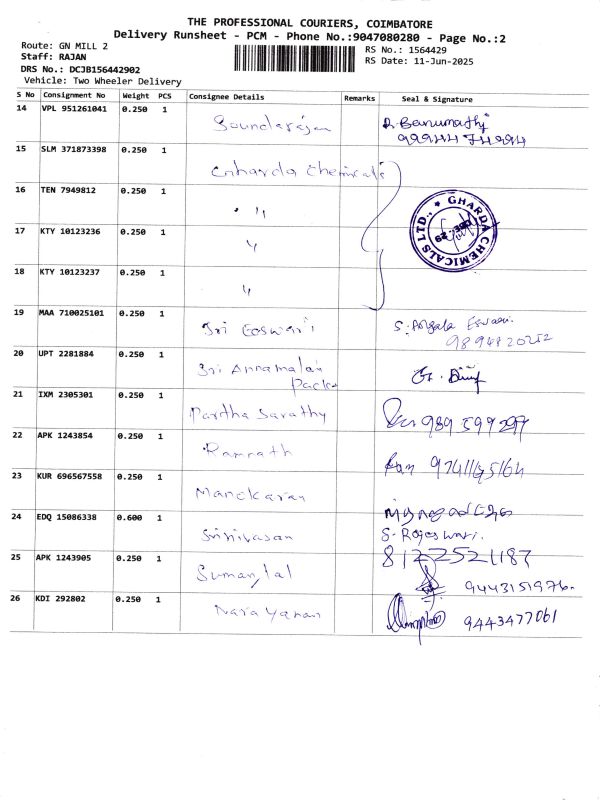 THE PROFESSIONAL COURIERS, COIMBATORE
Delivery Runsheet - PCM - Phone No.:9047080280 - Page No.:2
Route: GN MILL 2
RS No.: 1564429
Staff: RAJAN
RS Date: 11-Jun-2025
DRS No.: DCJB156442902
Vehicle: Two Wheeler Delivery
S No Consignment No Weight PCS Consignee Details Remarks Seal & Signature
14 VPL 951261041 0.250 1 Soundarajan R. Banumathi
15 SLM 371873398 0.250 1 Gharda Chemicals
16 TEN 7949812 0.250 1 " GHARDA CHEMICALS LTD.,
17 KTY 10123236 0.250 1 "
18 KTY 10123237 0.250 1 "
19 MAA 710025101 0.250 1 Sri Eeswari S. Angala Eswari.
9894820252
20 UPT 2281884 0.250 1 Sri Annamalai
Pack
21 IXM 2305301 0.250 1 Partha Sarathy
22 APK 1243854 0.250 1 Ramnath 9741145164
23 KUR 696567558 0.250 1 Manokaran
24 EDQ 15086338 0.600 1 Srinivasan S. Rajeswari.
8122521187
25 APK 1243905 0.250 1 Sumangal
26 KDI 292802 0.250 1 Narayanan 9443477061